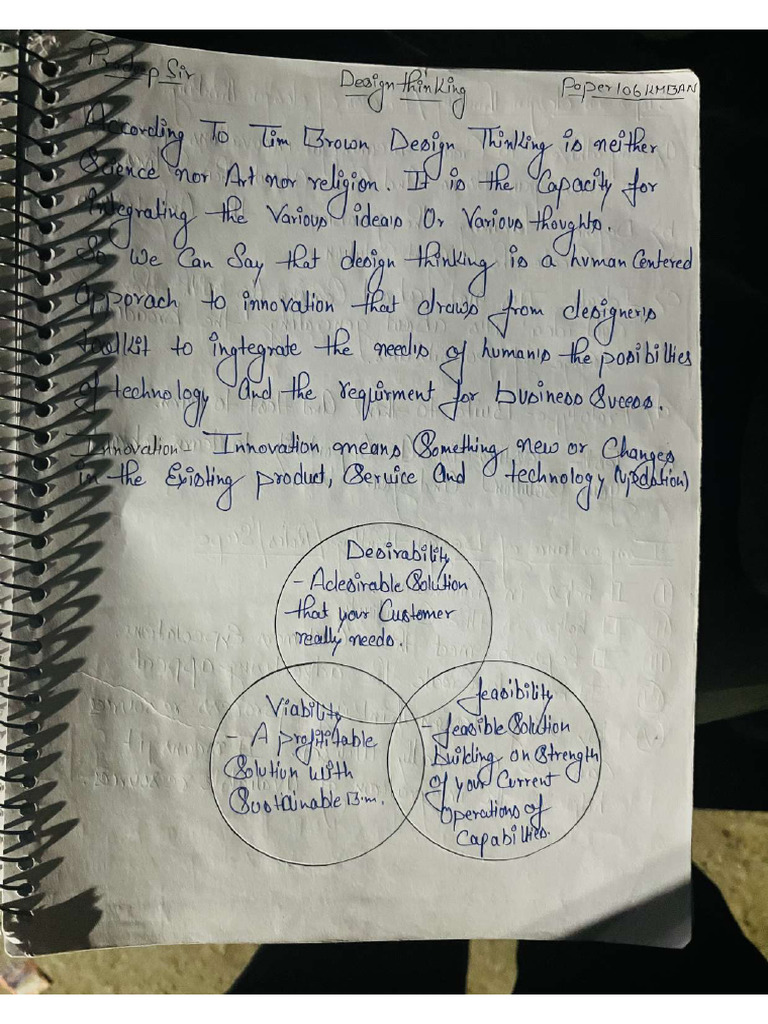 Pradeep Sir
Design thinking
Paper 106 KMBAN
According To Tim Brown Design Thinking is neither
Science nor Art nor religion. It is the Capacity for
Integrating the Various ideas Or Various thoughts.
So We Can Say that design thinking is a human Centered
apporach to innovation that draws from designer's
toolkit to ingtegrate the needs of human's the posibilties
of technology and the requirment for business Sucess.
Innovation - Innovation means Something new or Changes
in the Existing product, Service and technology (updation)
Desirability
- A desirable Solution
that your Customer
really needs.
Viability
- A profititable
Solution with
Sustainable B.m.
feasibility
- feasible Solution
building on strength
of your Current
Operations of
Capabilties.